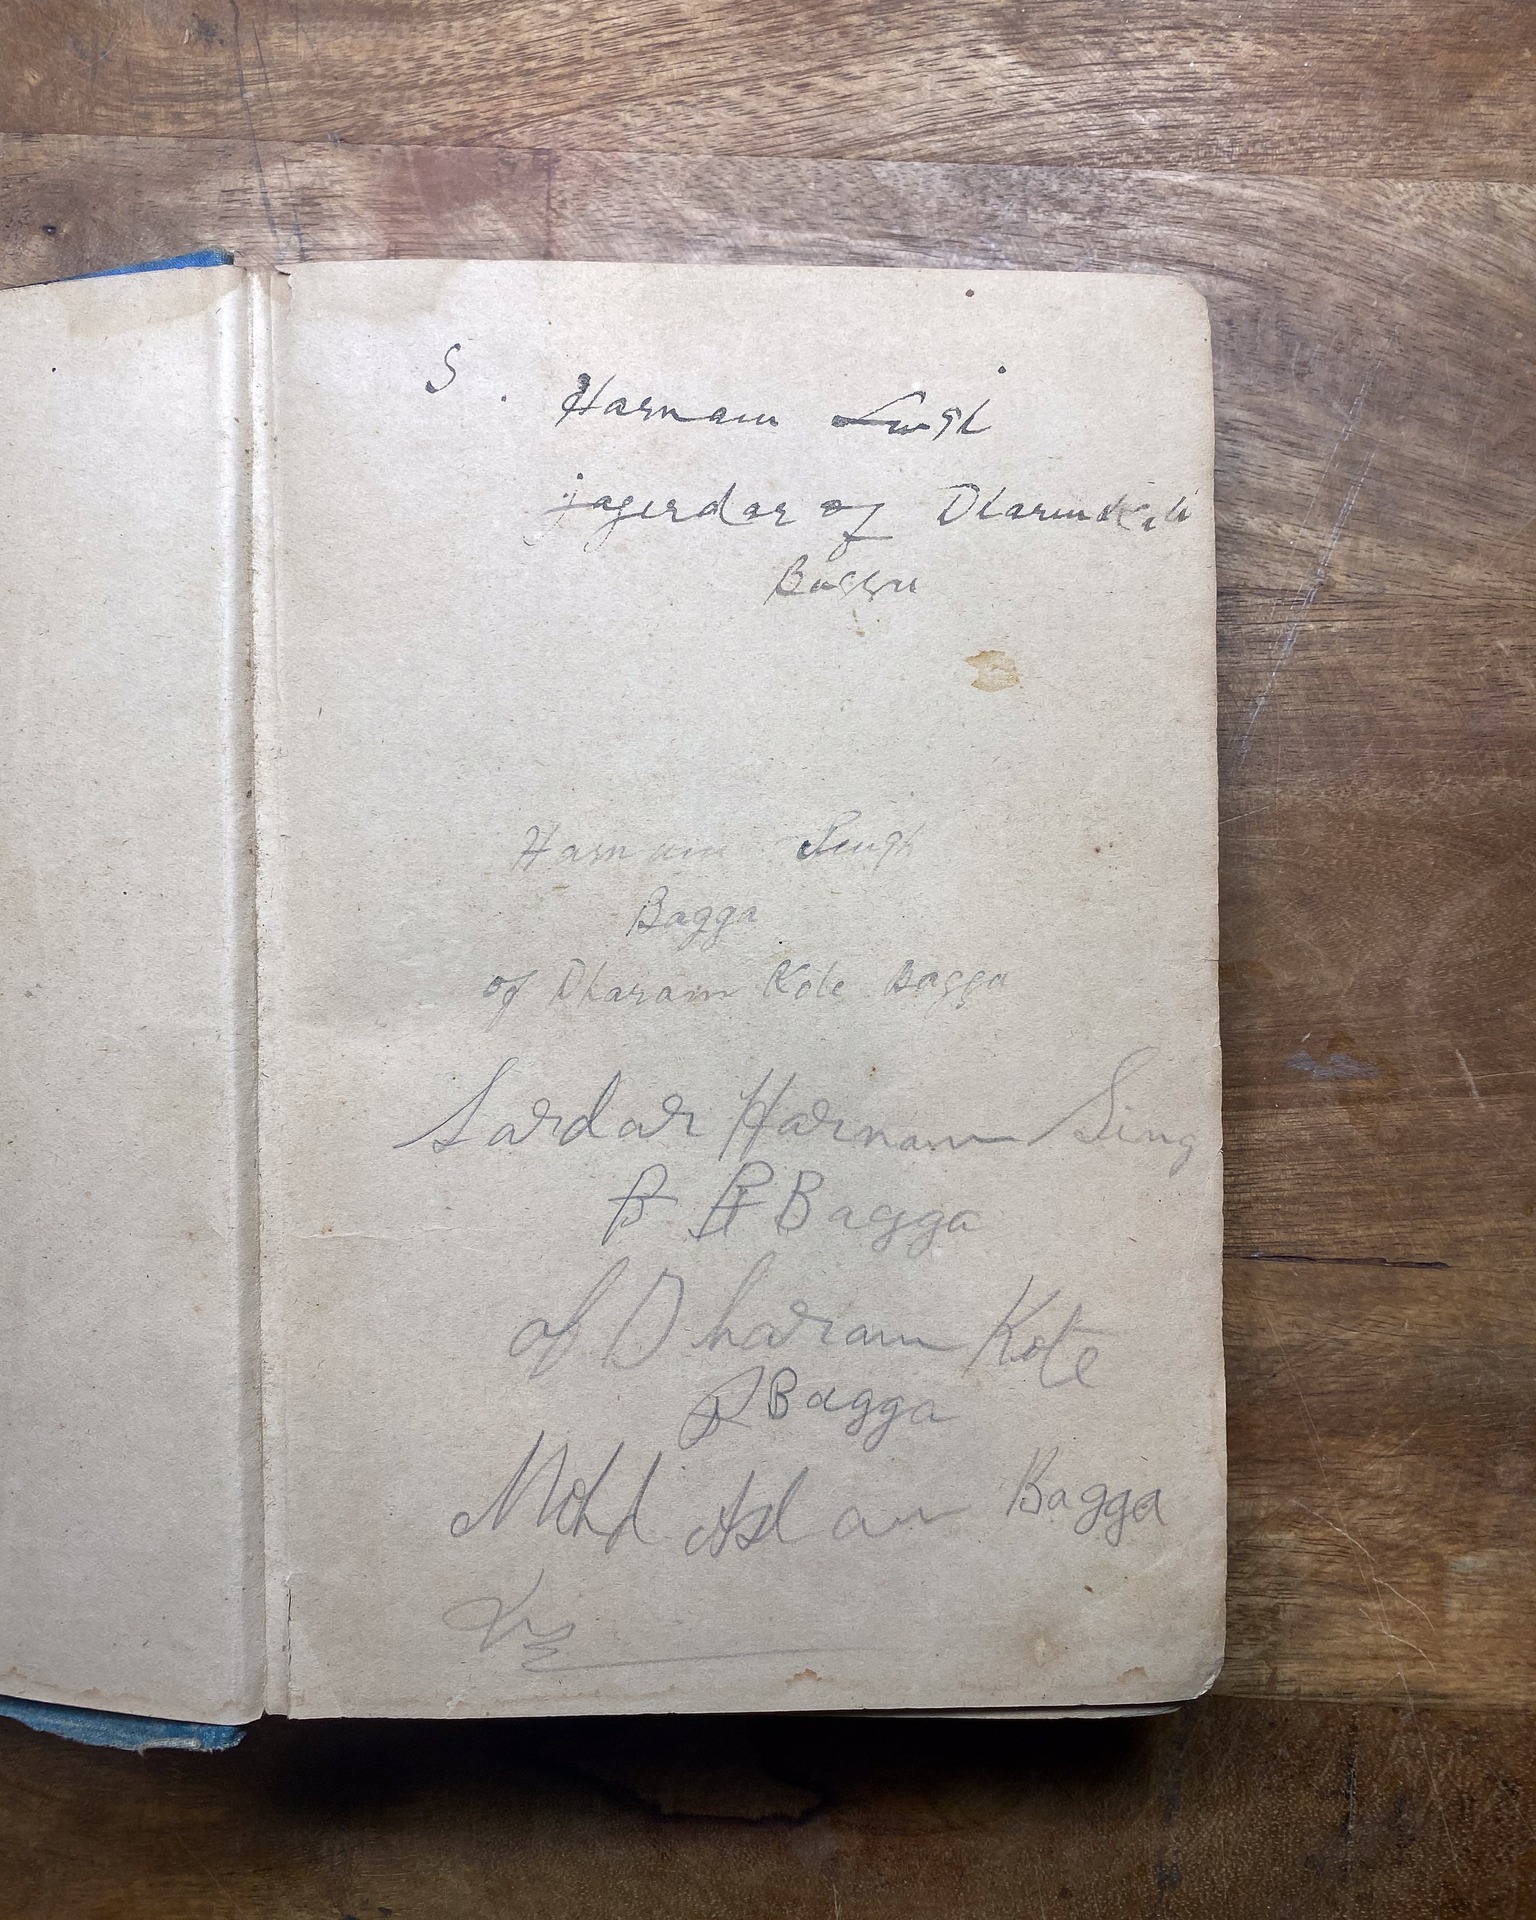 S. Harnam Singh
jagerdar of Dharmkot
Bagga
Harnam Singh
Bagga
of Dharam Kote Bagga
Sardar Harnam Sing
B B Bagga
of Dharam Kote
Bagga
Mohd Aslam Bagga